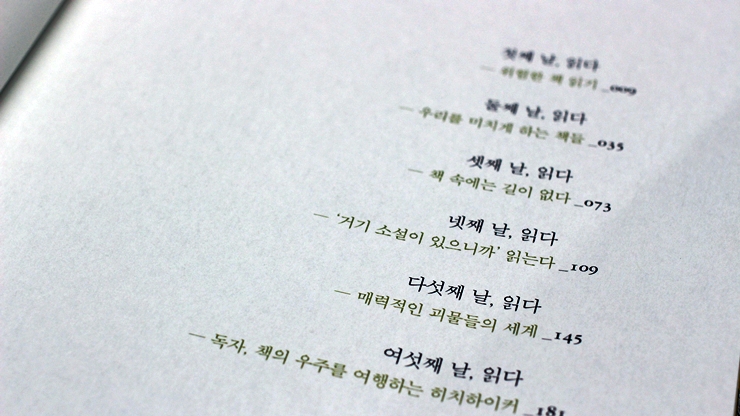 첫째 날, 읽다
— 위험한 책 읽기 _009
둘째 날, 읽다
— 우리를 미치게 하는 책들 _035
셋째 날, 읽다
— 책 속에는 길이 없다 _073
넷째 날, 읽다
— '거기 소설이 있으니까' 읽는다 _109
다섯째 날, 읽다
— 매력적인 괴물들의 세계 _145
여섯째 날, 읽다
— 독자, 책의 우주를 여행하는 히치하이커 _181